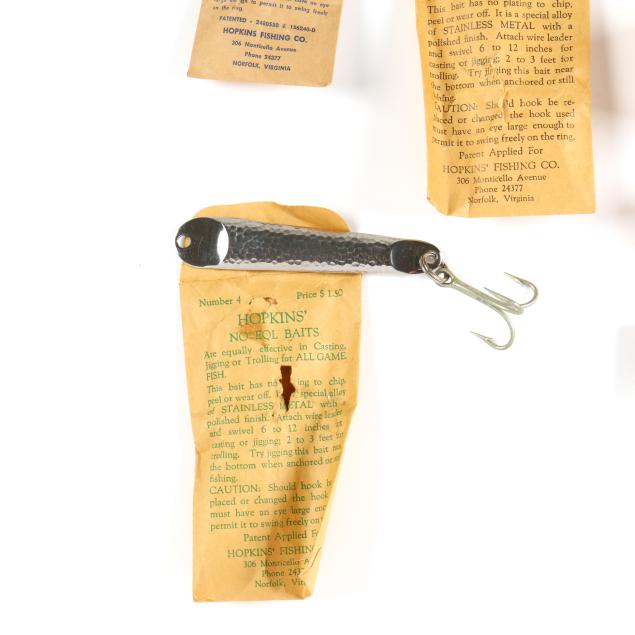 go to permit it to being freely
on the ring.
PATENTED - 2480580 & 156240-D
HOPKINS FISHING CO.
306 Monticello Avenue
Phone 24377
NORFOLK, VIRGINIA
This bait has no plating to chip,
peel or wear off. It is a special alloy
of STAINLESS METAL with a
polished finish. Attach wire leader
and swivel 6 to 12 inches for
casting or jigging; 2 to 3 feet for
trolling. Try jigging this bait near
the bottom when anchored or still
fishing.
CAUTION: Should hook be re-
placed or changed the hook used
must have an eye large enough to
permit it to swing freely on the ring.
Patent Applied For
HOPKINS' FISHING CO.
306 Monticello Avenue
Phone 24377
Norfolk, Virginia
Number 4 Price $ 1.50
HOPKINS'
NO-EQL BAITS
Are equally effective in Casting,
Jigging or Trolling for ALL GAME
FISH.
This bait has no ing to chip,
peel or wear off. special alloy
of STAINLESS METAL with a
polished finish. Attach wire leader
and swivel 6 to 12 inches for
casting or jigging; 2 to 3 feet for
trolling. Try jigging this bait
the bottom when anchored or
fishing.
CAUTION: Should hook be
placed or changed the hook
must have an eye large
permit it to swing freely on
Patent Applied
HOPKINS' FISHING
306 Monticello
Phone
Norfolk,